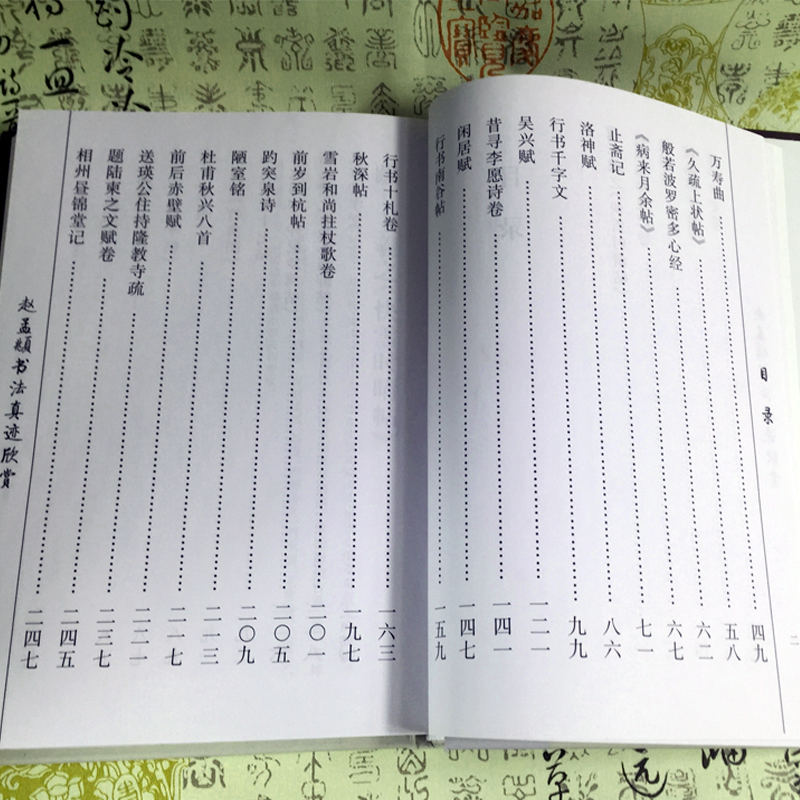 目录
二
万寿曲……四九
《久疏上状帖》……五八
般若波罗密多心经……六二
《病来月余帖》……六七
止斋记……七一
洛神赋……八六
行书千字文……九九
吴兴赋……一二一
昔寻李愿诗卷……一四一
闲居赋……一四七
行书南谷帖……一五九
行书十札卷……一六三
秋深帖……一九七
雪岩和尚拄杖歌卷……二〇一
前岁到杭帖……二〇五
趵突泉诗……二〇九
陋室铭……二一三
杜甫秋兴八首……二一七
前后赤壁赋……二二一
送瑛公住持隆教寺疏……二三七
题陆柬之文赋卷……二四五
相州昼锦堂记……二四七
赵孟頫书法真迹欣赏